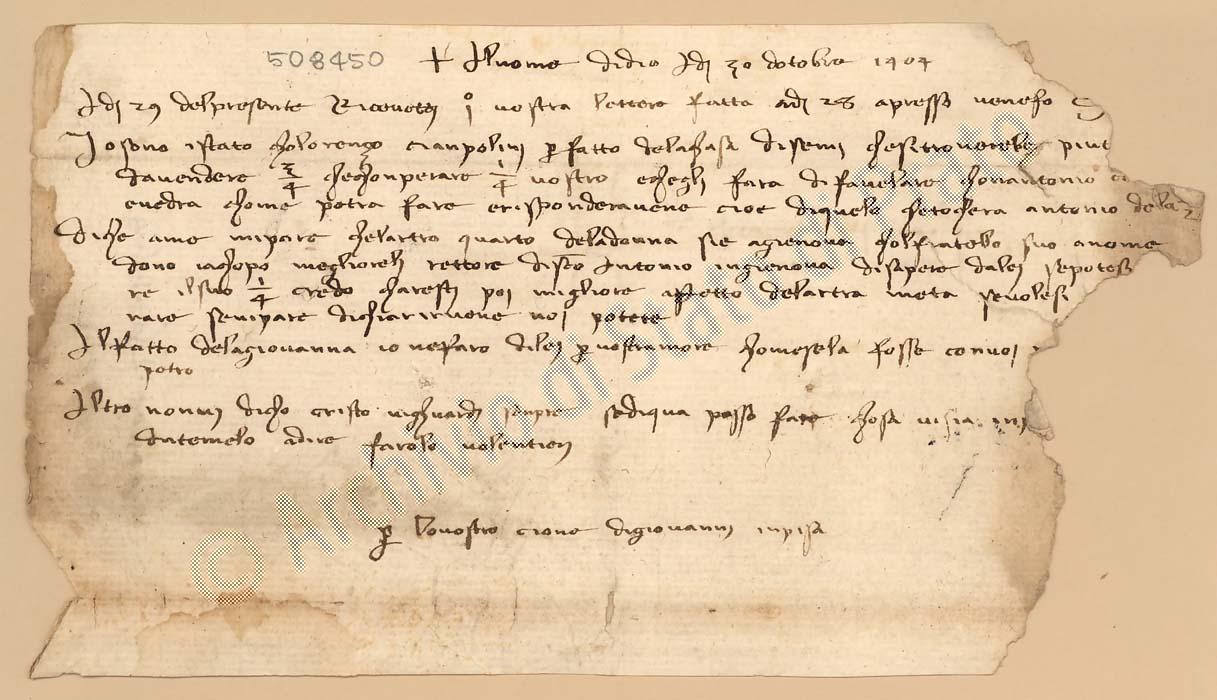 508450
+ Al nome didio Adj 30 dotobre 1404
Adj 29 delpresente Ricevetti j° vostra lettera fatta adj 28 apresso venefo
Io sono istato cholorenzo cianpolini p fatto delachasa disemi chesitroverebe piut
davendere 3/4 chechonperare 1/4 vostro echegli fara difavelare chonantonio
evedra chome potra fare erisponderavene cioe diquelo chetochera antonio dela
Diche ame mipare chelartro quarto deladonna sie agienova cholfratelo suo anome
dono iachopo megliorelj rettore discto Antonio ingienova disapere dalej sepotesi
re ilsuo 1/4 credo charesti poi migliore assetto delartra meta sevolesi
rare semipare dichiarirvene voj potete
Il fatto delagiovanna io nefaro dilej p vostramore chomesela fosse convoj
potro
Altro nonvi dicho cristo vighuardj senpre sediqua posso fare chosa visia
datemelo adire farolo volentieri
p lovostro cione digiovanni inpisa
© Archivio di Stato di Prato